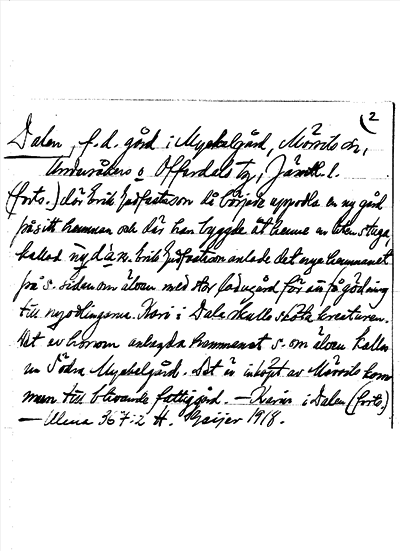 2
Dalen, f.d. gård i Myckelgård, Mörsils sn,
Undersåkers o Offerdals tg, Jämtl. l.
(forts.) där Erik Josefsson då började uppodla en ny gård
på sitt hemman och där han byggde åt henne en liten stuga,
kallad nydan. Erik anlade det nya hemmanet
på s. sidan om älven med stor ladugård för att få gödning
till nyodlingarna. Kari i Dale skulle sköta kreaturen.
Det av honom anlagda hemmanet s. om älven kallas
nu Södra Myckelgård. Det är inköpt av Mörsils kom
mun till blivande fattiggård. — Karin i Dalen (forts.)
— Ulma 367:2 H. Geijer 1918.